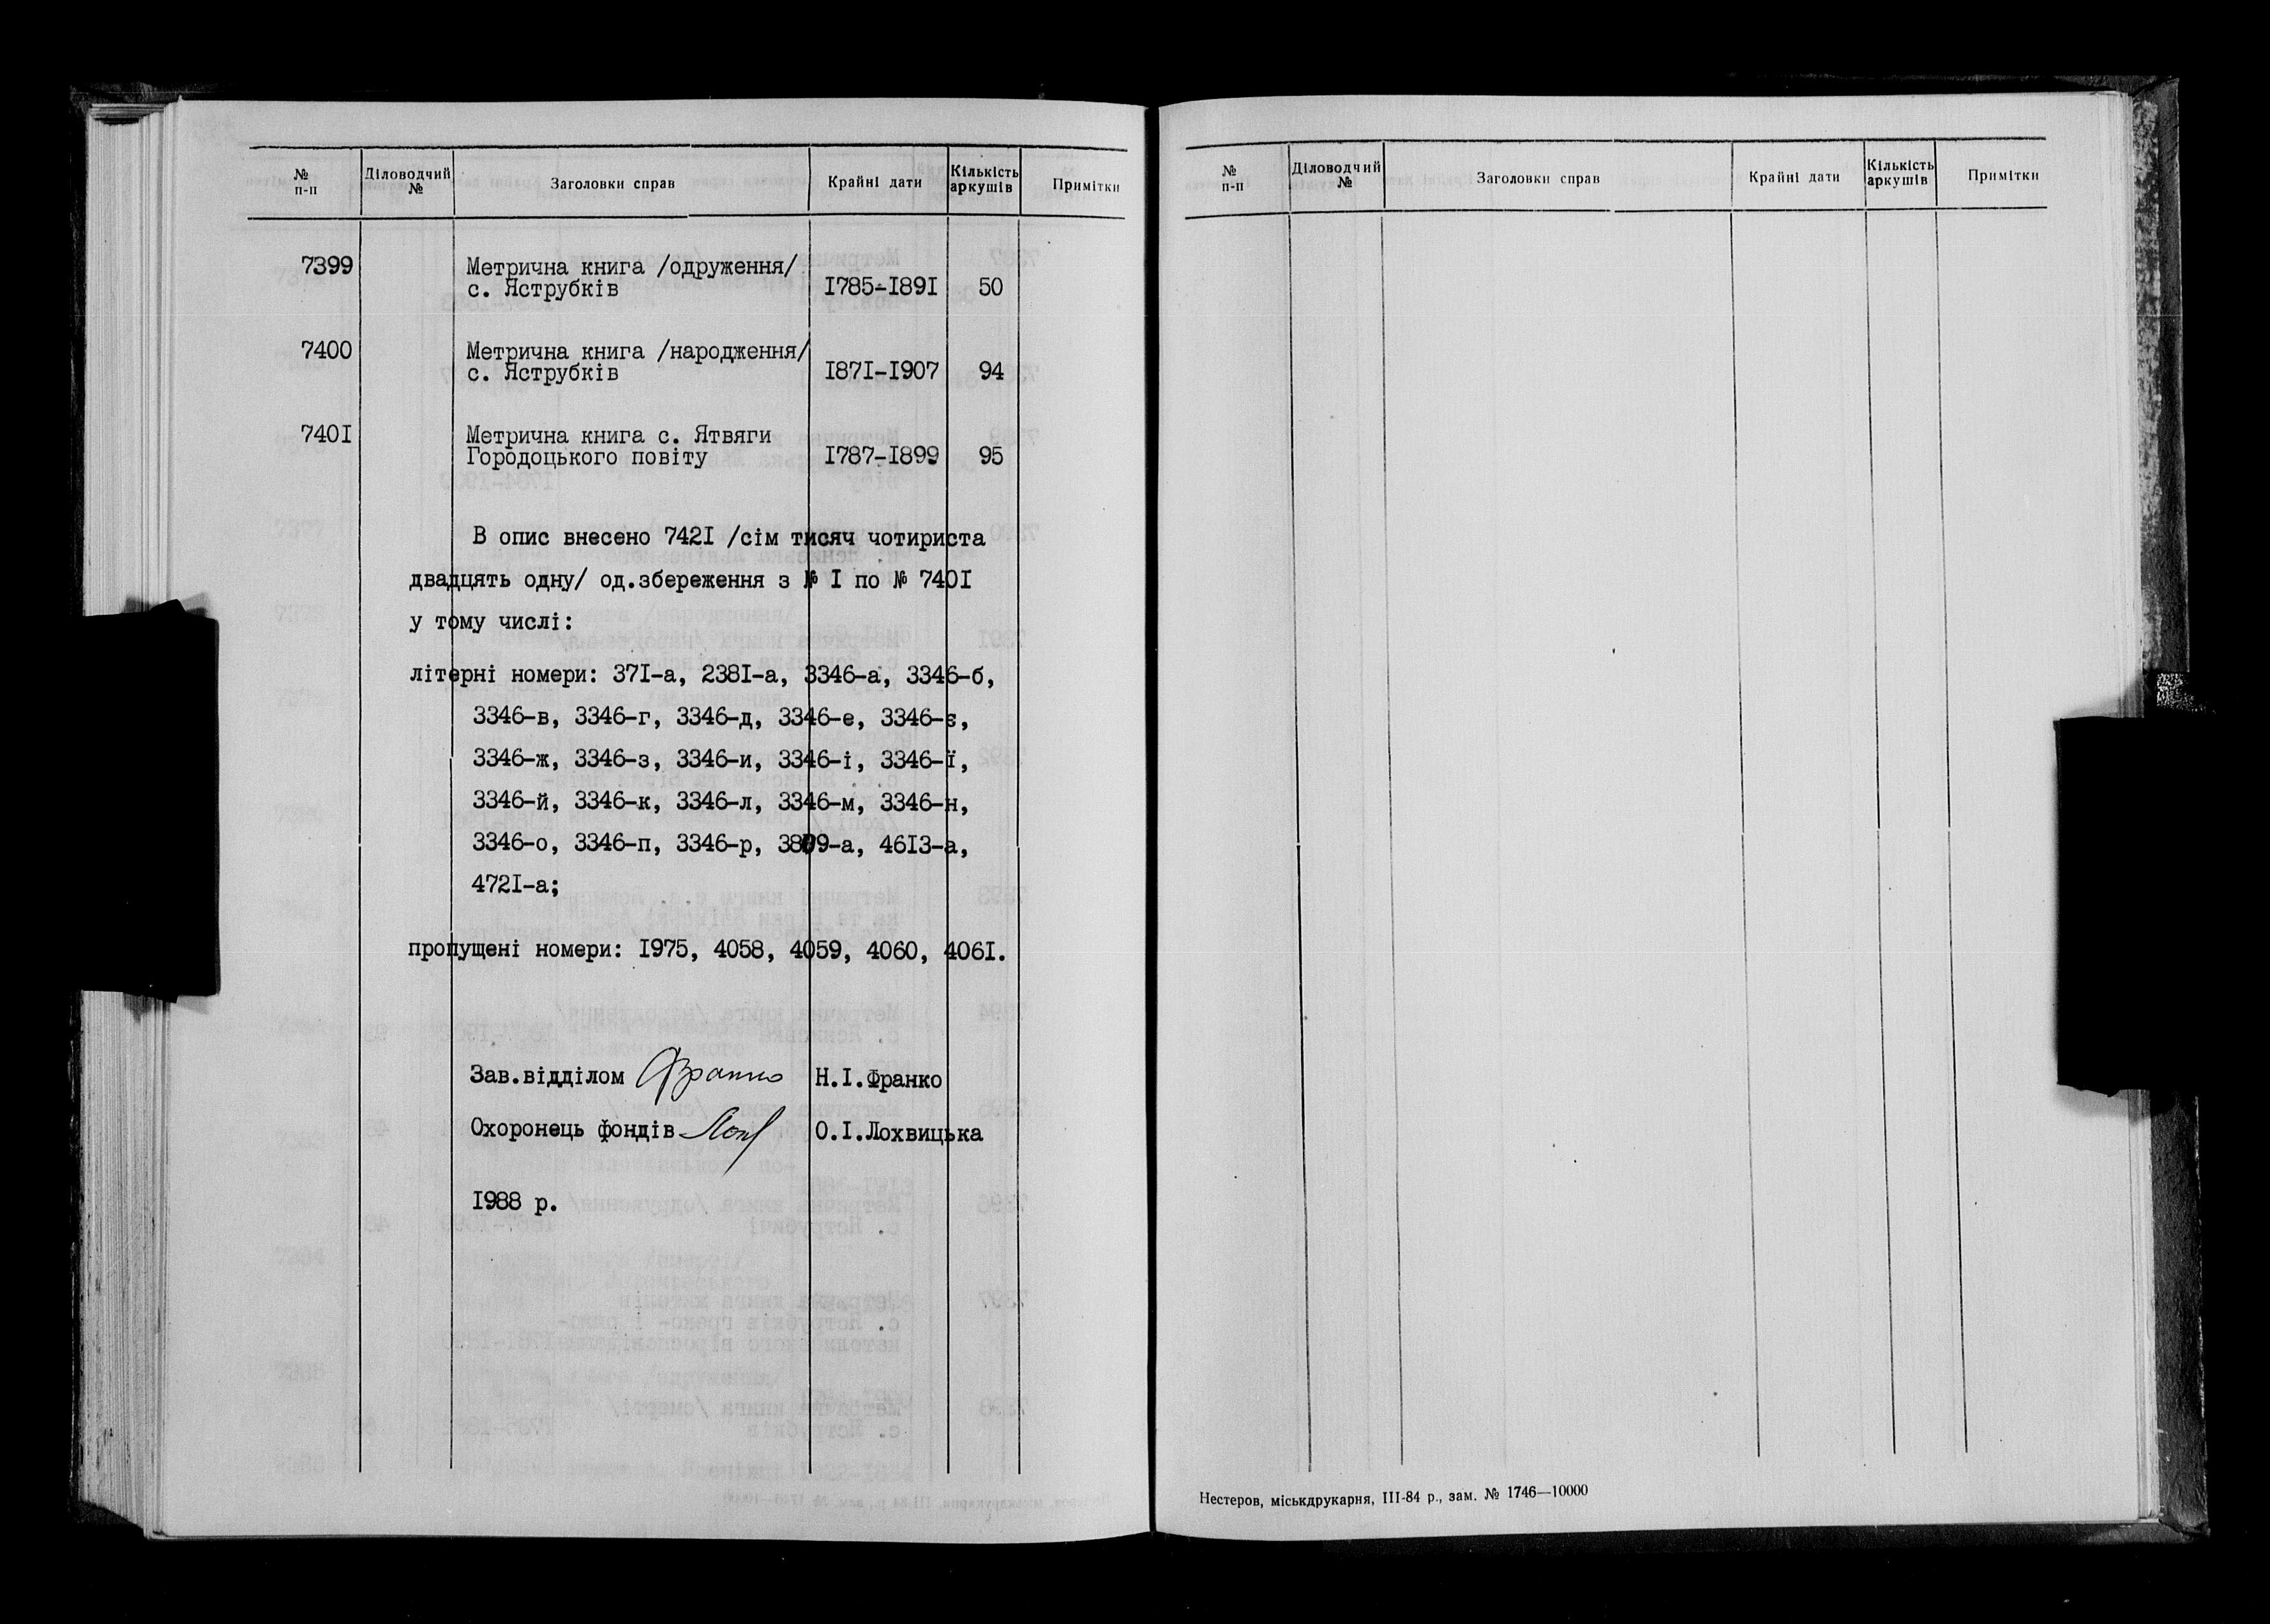 № п-п Діловодчий № Заголовки справ Крайні дати Кількість аркушів Примітки
7399 Метрична книга /одруження/
с. Яструбків 1785-1891 50
7400 Метрична книга /народження/
с. Яструбків 1871-1907 94
7401 Метрична книга с. Ятвяги
Городоцького повіту 1787-1899 95
В опис внесено 7421 /сім тисяч чотириста
двадцять одну/ од.збереження з № 1 по № 7401
у тому числі:
літерні номери: 371-а, 2381-а, 3346-а, 3346-б,
3346-в, 3346-г, 3346-д, 3346-е, 3346-є,
3346-ж, 3346-з, 3346-и, 3346-і, 3346-ї,
3346-й, 3346-к, 3346-л, 3346-м, 3346-н,
3346-о, 3346-п, 3346-р, 4613-а,
4721-а;
пропущені номери: 1975, 4058, 4059, 4060, 4061.
Зав.відділом Франко Н.І.Франко
Охоронець фондів О.І.Лохвицька
1988 р.
№ п-п Діловодчий № Заголовки справ Крайні дати Кількість аркушів Примітки
Нестеров, міськдрукарня, III-84 р., зам. № 1746—10000